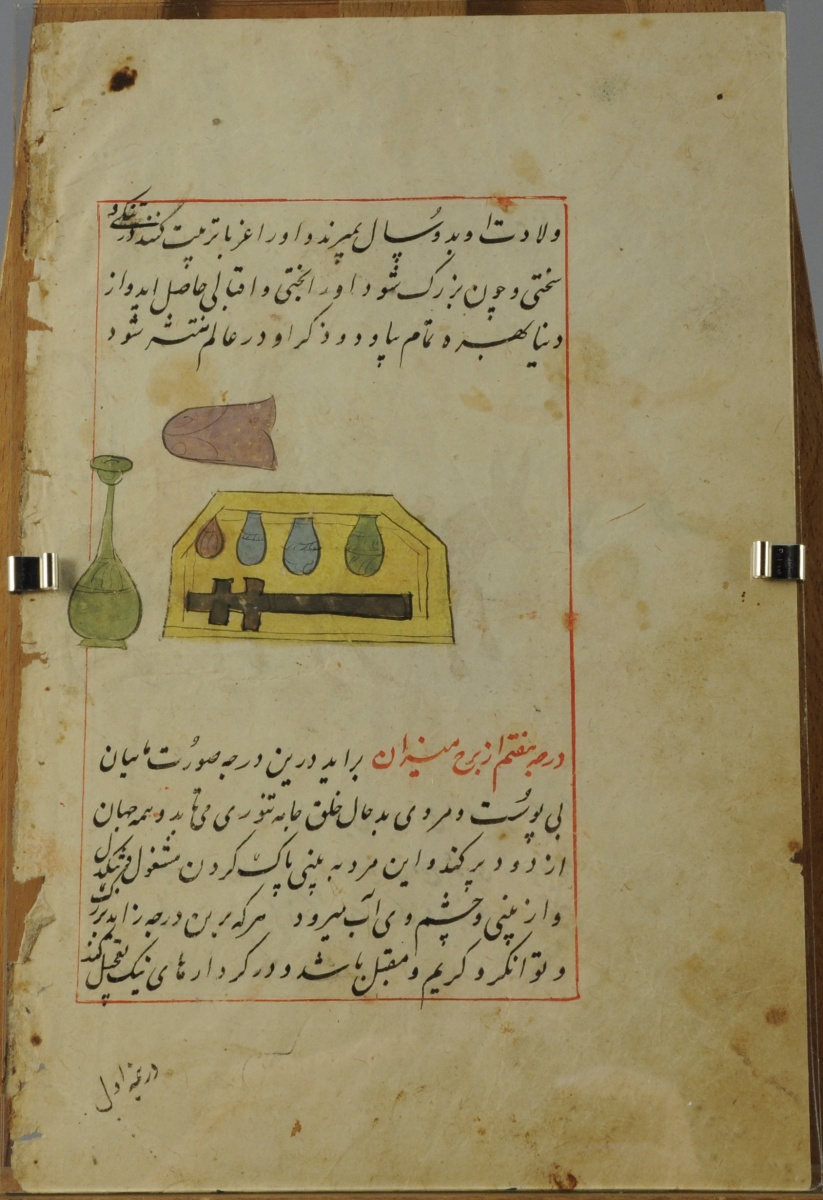 ولادت او بد و سال بمیرند و او را غربا تربیت کنند در تنگی و
سختی و چون بزرگ شود او را بختی و اقبالی حاصل اید و از
دنیا بهره تمام یابد و ذکر او در عالم منتشر شود
درجه هفتم از برج میزان براید درین درجه صورت ماهیان
بی پوست و مردی بد حال خلق جامه تنوری می تابد و همه جهان
از دود پر کند و این مرد به بینی پاک کردن مشغول
و از بینی و چشم وی آب میرود هرکه برین درجه زاید بزرگ
و توانکر و کریم و مقبل باشد و در کردارهای نیک تعجیل کند